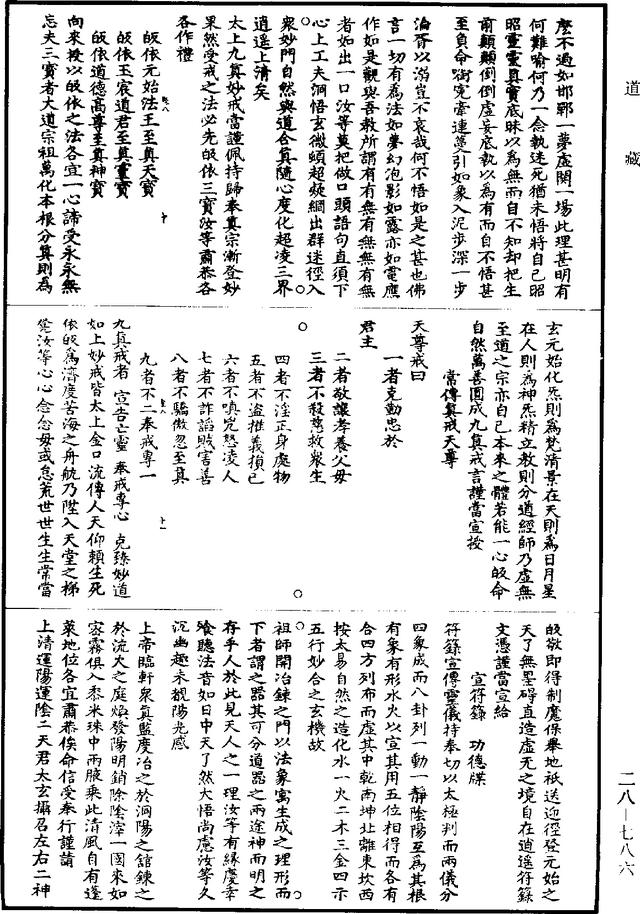 道藏
麽不過如邯鄲一夢虛閱一場此理甚明有
何難喻何乃一念執迷死猶未悟將自己昭
昭靈靈真實底昧以為無而自不知却把生
前顛顛倒倒虛妄底執以為有而自不悟甚
至負命銜寃牽連蔓引如象入泥步深一步
淪胥以溺豈不哀哉何不悟如是之甚也佛
言一切有為法如夢幻泡影如露亦如電應
作如是觀與吾教所謂有有無有無無有無
者如出一口汝等莫把做口頭語句直須下
心上工夫洞悟玄微頓超疑網出群迷徑入
衆妙門自然與道合真隨心度化超凌三界
逍遥上清矣
太上九真妙戒當謹佩持歸奉真宗漸登妙
果然受戒之法必先皈依三寶汝等肅恭各
各作禮
皈依元始法王至真天寶
皈依玉宸道君至真靈寶
皈依道德高尊至真神寶
向來授以皈依之法各宜一心諦受永永無
忘夫三寶者大道宗祖萬化本根分真則為
玄元始化炁則為梵清景在天則為日月星
在人則為神炁精立教則分道經師乃虛無
至道之宗亦自己本來之體若能一心皈命
自然萬善圓成九真戒言謹當宣授
常傳真戒天尊
天尊戒曰
一者克勤忠於
君主
二者敬讓孝養父母
三者不殺慈救衆生
四者不淫正身處物
五者不盜推義損己
六者不嗔兇怒凌人
七者不詐諂賊害善
八者不驕傲忽至真
九者不二奉戒專一
九真戒者 宣告亡靈 奉戒專心 克臻妙道
如上妙戒皆太上金口流傳人天仰賴生死
依皈為濟度苦海之舟航乃陞入天堂之梯
凳汝等心心念念毋或怠荒世世生生常當
皈敬即得制魔保舉地祇送迎徑登元始之
天了無罣碍直造虛无之境自在逍遥符籙
文憑謹當宣給
宣符籙 功德牒
符籙宣傳靈儀持奉切以太極判而兩儀分
四象成而八卦列一動一靜陰陽互為其根
有象有形水火以宣其用五位相得而各有
合四方列布而虛其中乾南坤北離東坎西
按太易自然之造化水一火二木三金四示
五行妙合之玄機故
祖師開冶鍊之門以法象寓生成之理形而
下者謂之器其可分道器之兩途神而明之
存乎人於此見天人之一理汝等有緣慶幸
飱聽法音如日中天了然大悟尚慮汝等久
沉幽趣未覩陽光感
上帝臨軒衆真監度冶之於洞陽之舘鍊之
於流火之庭煥發陽明銷除陰滓一圈來如
密霧俱入黍米珠中兩腋乘此清風自有蓬
萊地位各宜肅恭俟命信受奉行謹請
上清運陽運陰二天君太玄攝召左右二神
二八—七八六